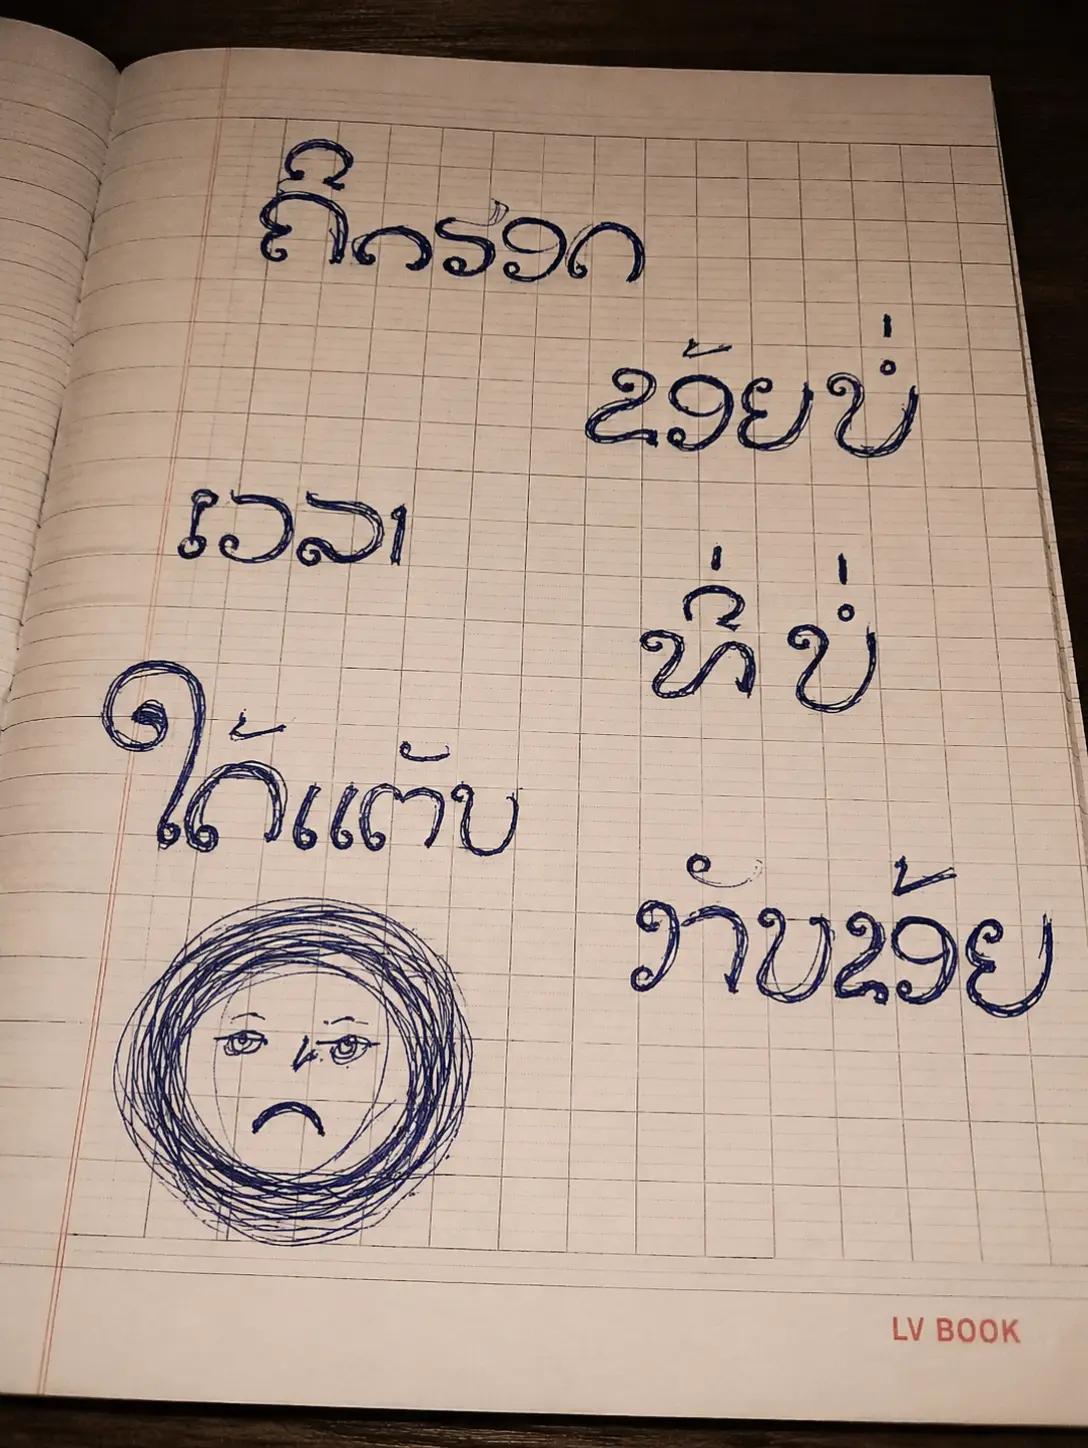 ຄິດຮອດ
ຂ້ອຍບໍ່
ເວລາ
ທີ່ບໍ່
ໃດ້ແຕັບ
ກັບຂ້ອຍ
LV BOOK